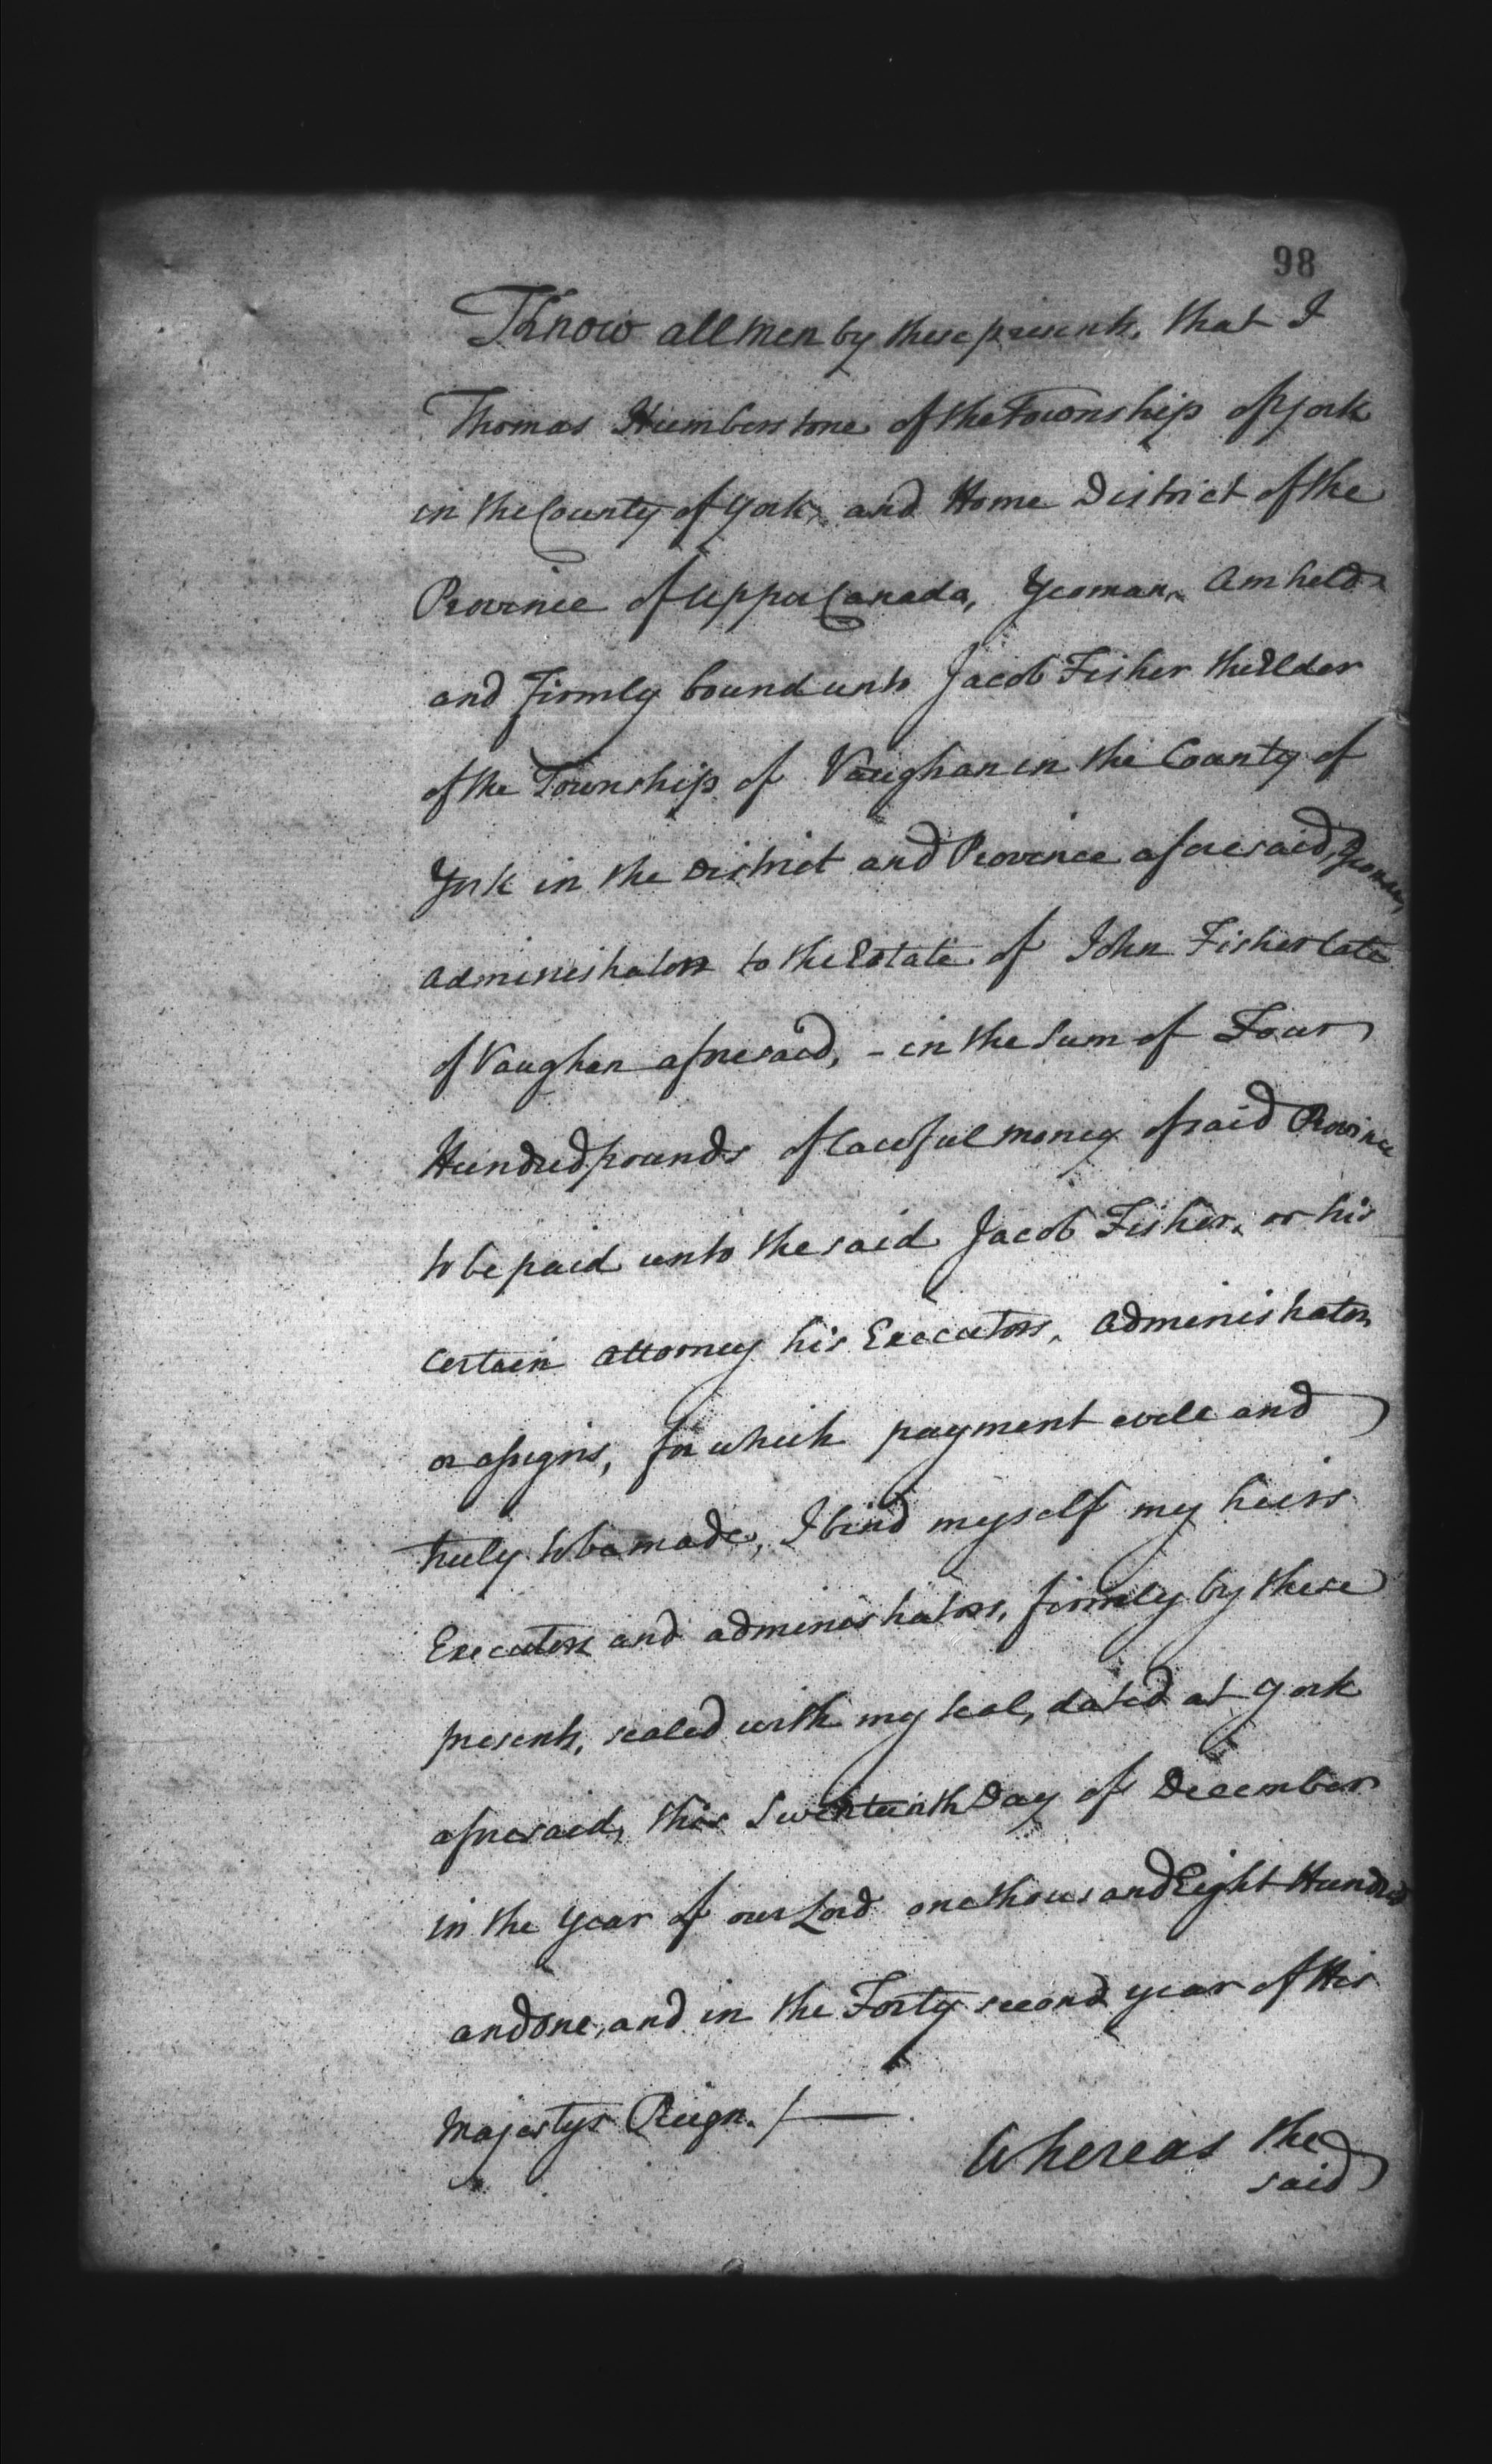 98
Know all men by these presents, that I
Thomas Humberstone of the Township of York
in the County of York, and Home District of the
Province of Upper Canada, Yeoman, am held
and firmly bound unto Jacob Fisher the Elder
of the Township of Vaughan in the County of
York in the District and Province aforesaid, Yeoman,
administrator to the Estate of John Fisher late
of Vaughan aforesaid, - in the Sum of Four
Hundred pounds of lawful money of said Province
to be paid unto the said Jacob Fisher, or his
certain attorney his Executors, administrators
or assigns, for which payment well and
truly to be made, I bind myself my heirs
Executors and administrators, firmly by these
presents, sealed with my seal, dated at York
aforesaid, this Day of December
in the year of our Lord one thousand Eight Hundred
and one, and in the Forty second year of His
Majestys Reign. /—
Whereas the
said